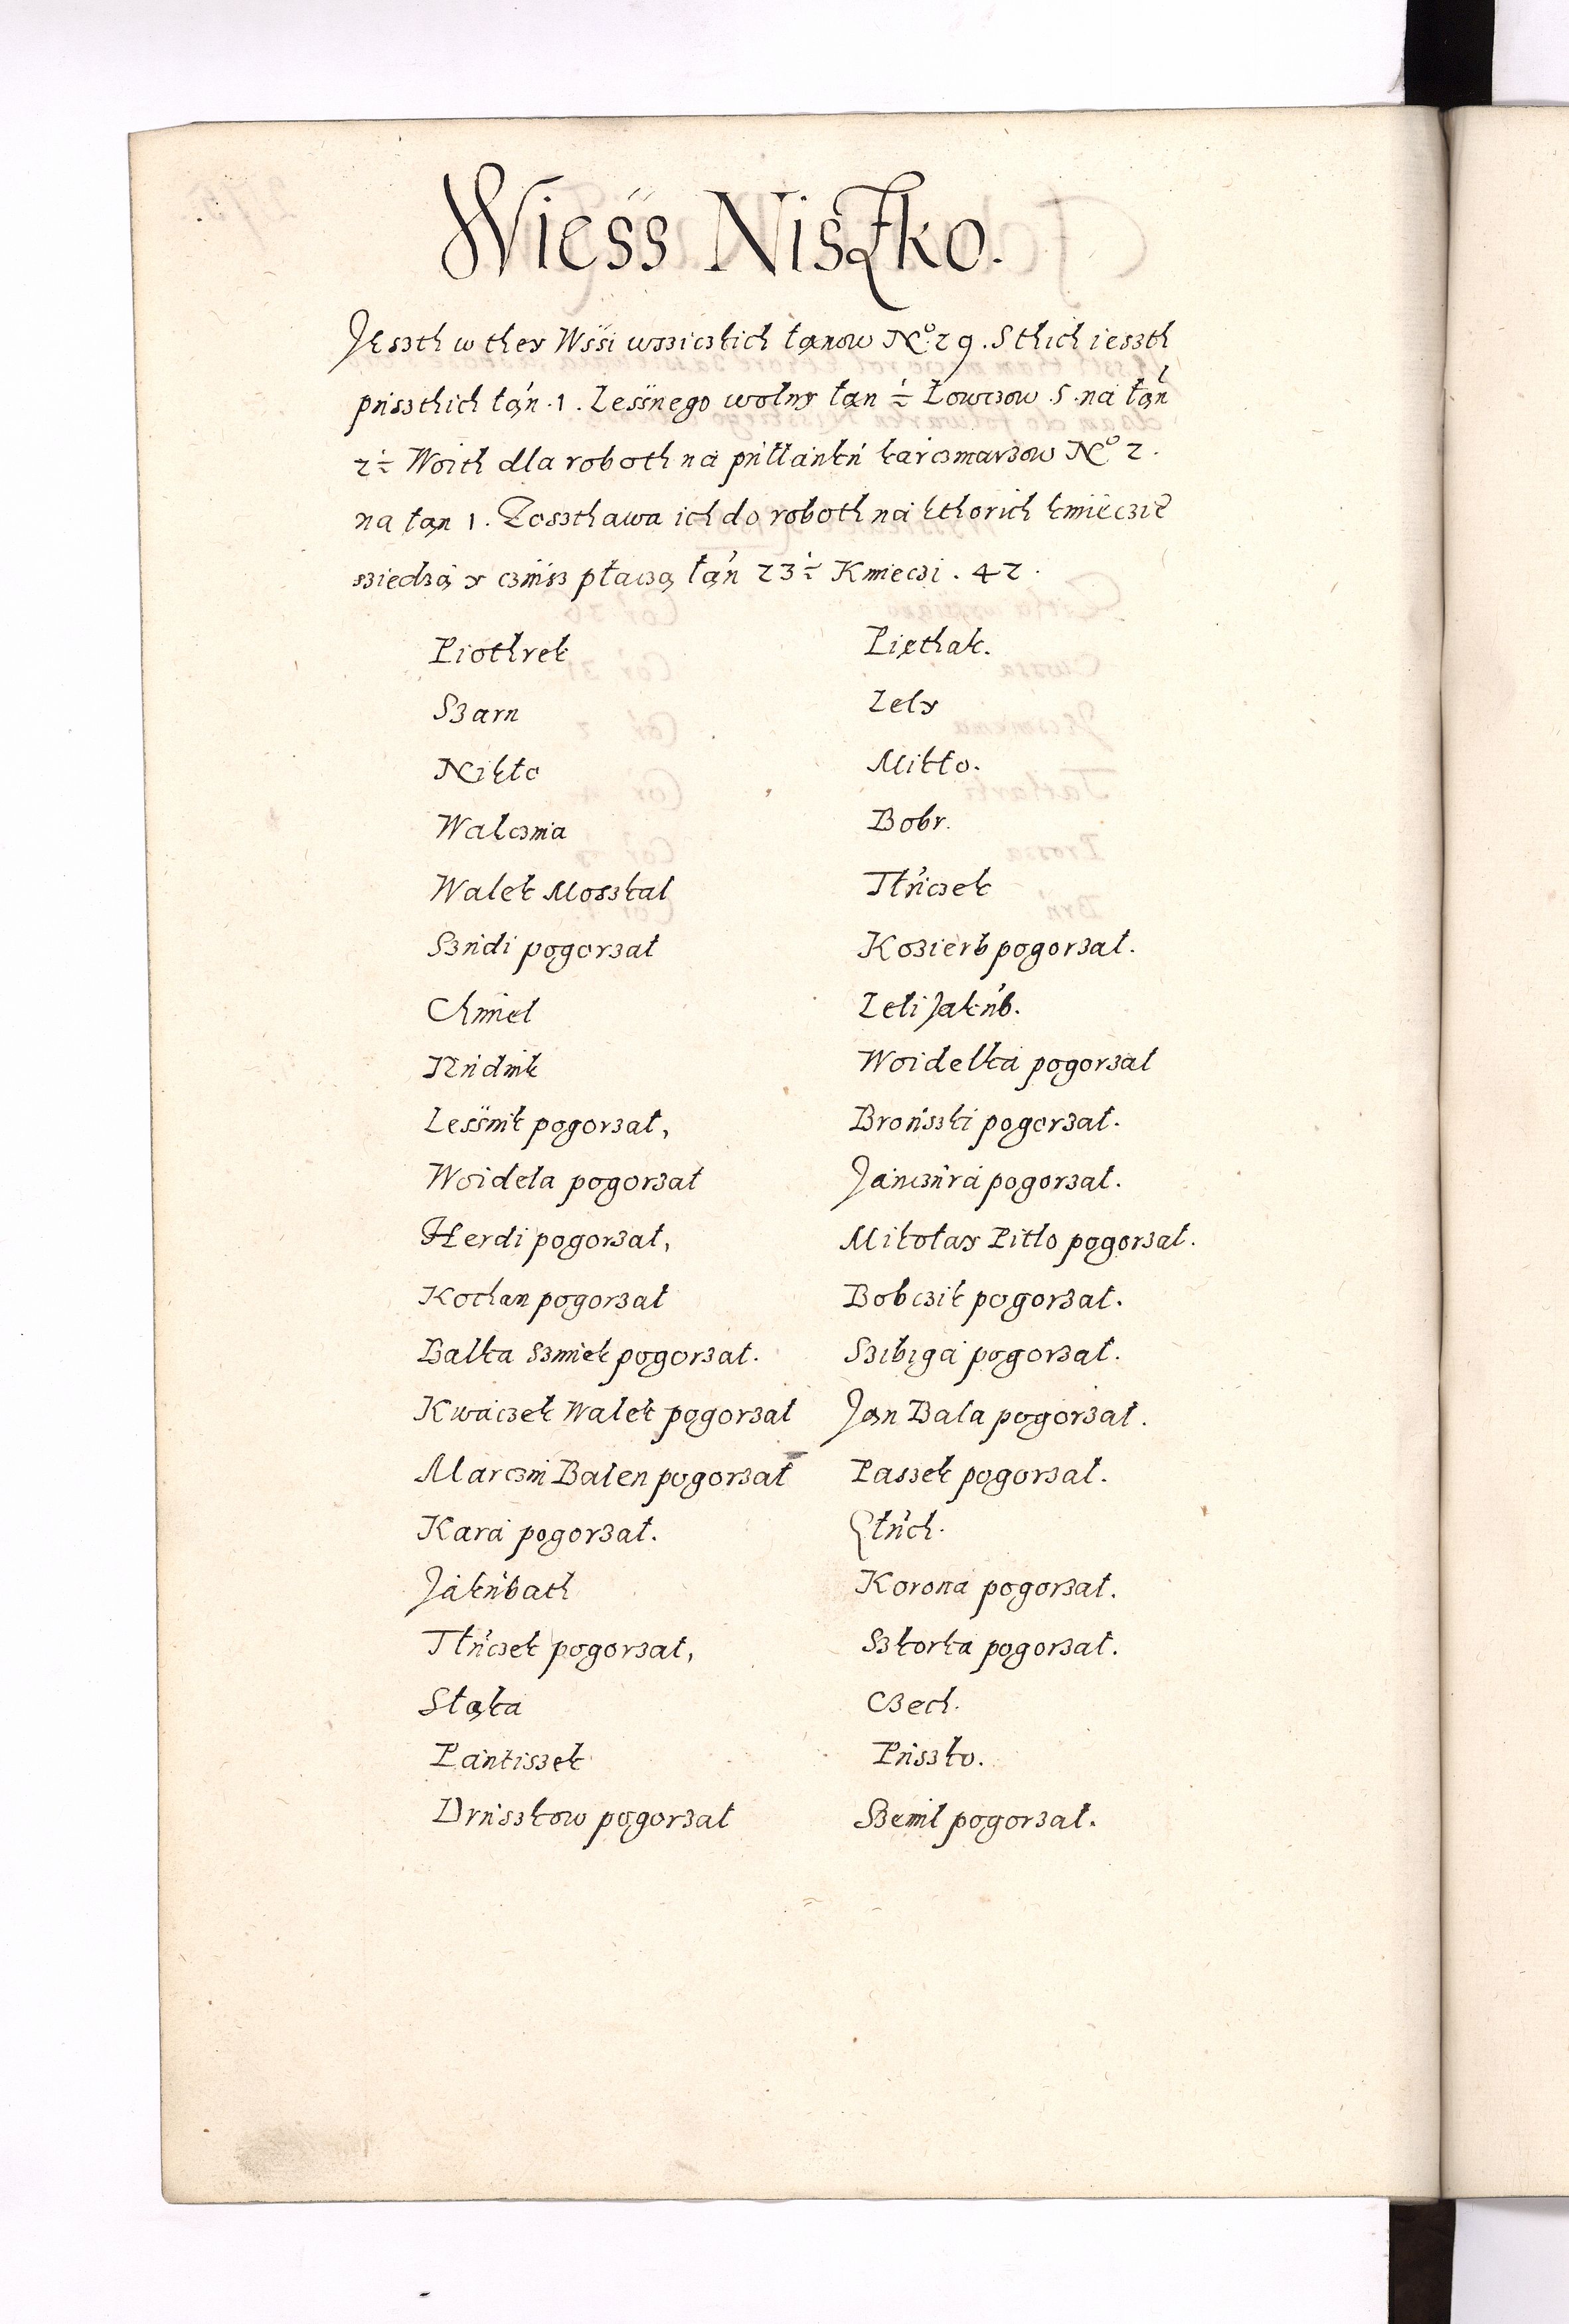 Wiess Niszko.
Jeszth w they Wssi wsziczkich łanow No. 29. S thich ieszth
puszthich łan. 1. Lessnego wolny łan ½ Łowczow. 5. na łan
2½ Woith dla roboth na pułłanku karczmarzow No 2.
na łan 1. Zoszthawa ich do roboth na kthorich kmieczie
sziedzą y czinsz płaczą łan 23½ Kmieczi. 42.
Piothrek
Szarn
Nikło
Walczina
Walek Moszkal
Szudi pogorzał
Chmiel
Rudnik
Lessnik pogorzał,
Woidela pogorzał
Herdi pogorzał,
Kochan pogorzał
Balka Szmiek pogorzał.
Kwaczek Walek pogorzał
Marczin Balen pogorzał
Kara pogorzał.
Jakubath
Tłuczek pogorzał,
Stąka
Pantiszek
Druszkow pogorzał
Piethak.
Lely
Mikło.
Bobr.
Tłuczek
Kozierb pogorzał.
Leli Jakub.
Woidelka pogorzał
Bronszki pogorzał.
Janczura pogorzał.
Mikołay Pitlo pogorzał.
Bobczik pogorzał.
Szibiga pogorzał.
Jan Bala pogorzał.
Paszek pogorzał.
Głuch.
Korona pogorzał.
Szkorka pogorzał.
Czech.
Puszko.
Szemil pogorzał.